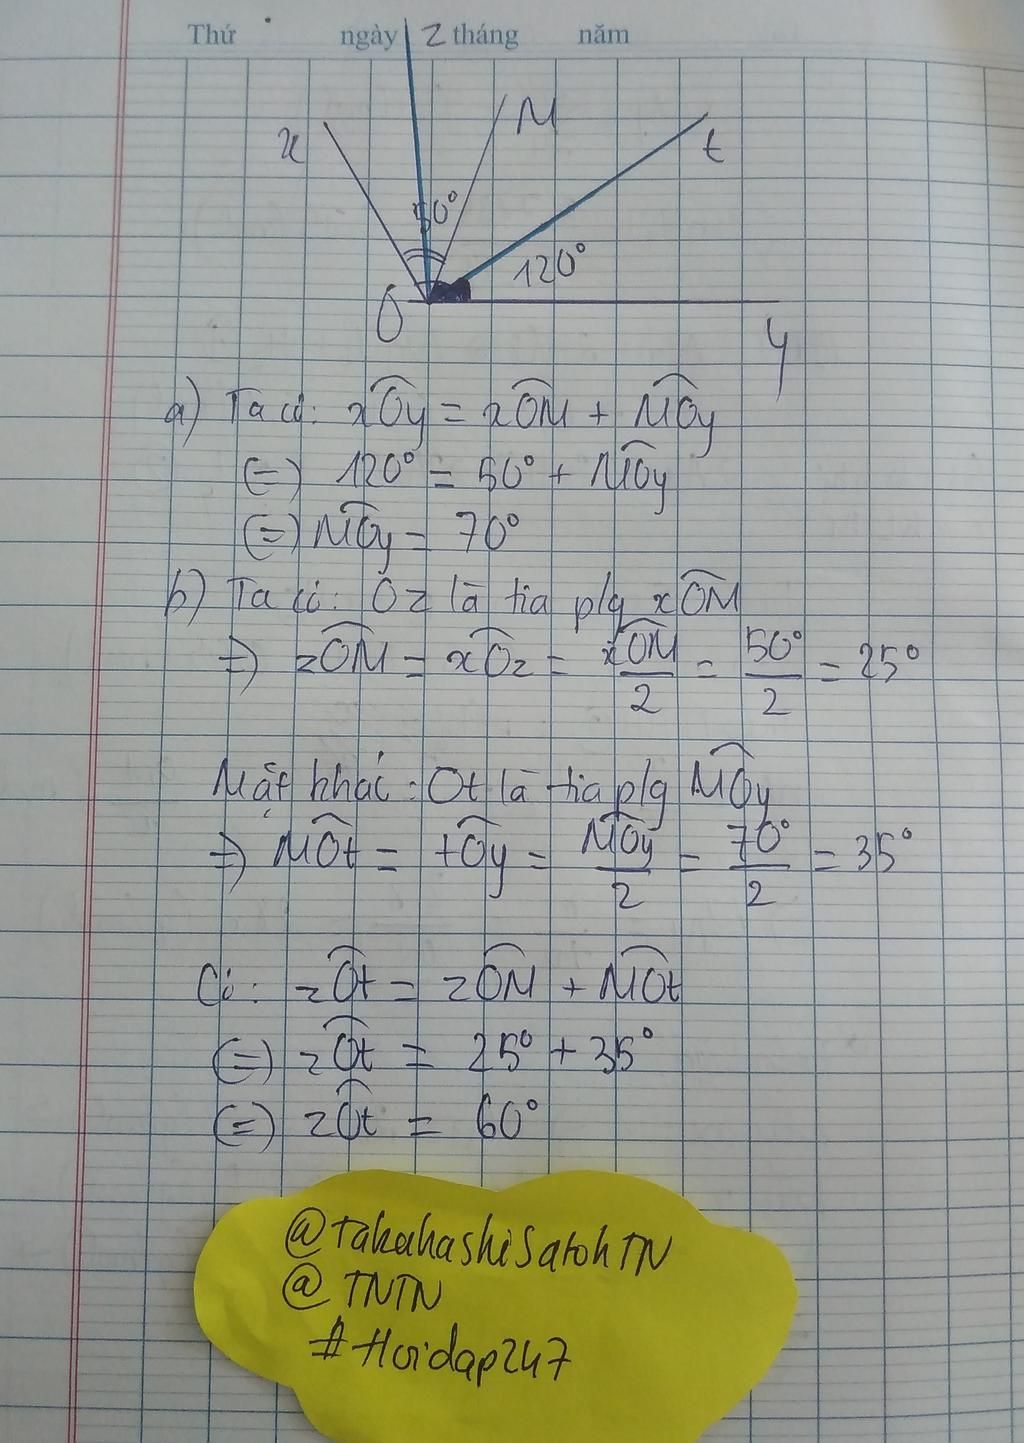 Thứ ngày z tháng năm
x M t
50°
120°
O y
a) Ta có: xOy = xOM + MOy
(=) 120° = 50° + MOy
(=) MOy = 70°
b) Ta có: Oz là tia p/g xOM
=) zOM = xOz = xOM/2 = 50°/2 = 25°
Mặt khác: Ot là tia p/g MOy
=) MOt = tOy = MOy/2 = 70°/2 = 35°
Có: zOt = zOM + MOt
(=) zOt = 25° + 35°
(=) zOt = 60°
@TakahashiSatohTN
@TNTN
#Hoidap247